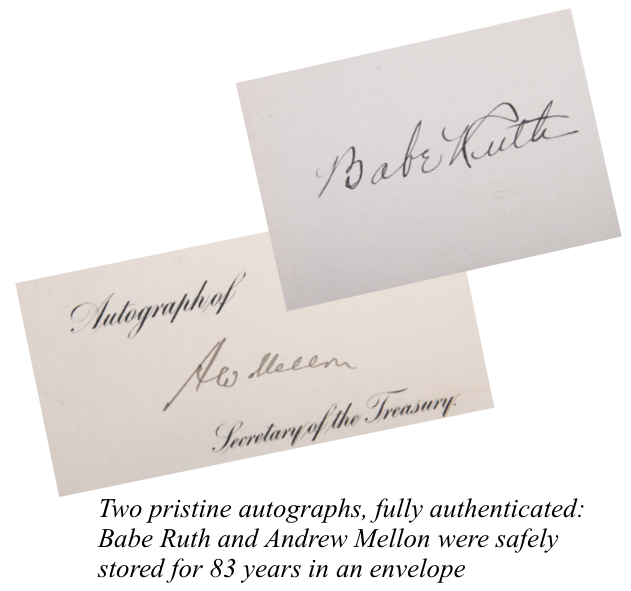 Babe Ruth
Autograph of
A W Mellon
Secretary of the Treasury.
Two pristine autographs, fully authenticated:
Babe Ruth and Andrew Mellon were safely
stored for 83 years in an envelope